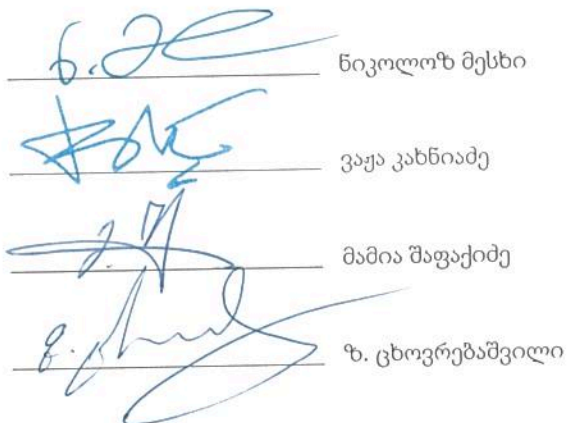 ნიკოლოზ მესხი
ვაჟა კახნიაძე
მამია შაფაქიძე
ზ. ცხოვრებაშვილი